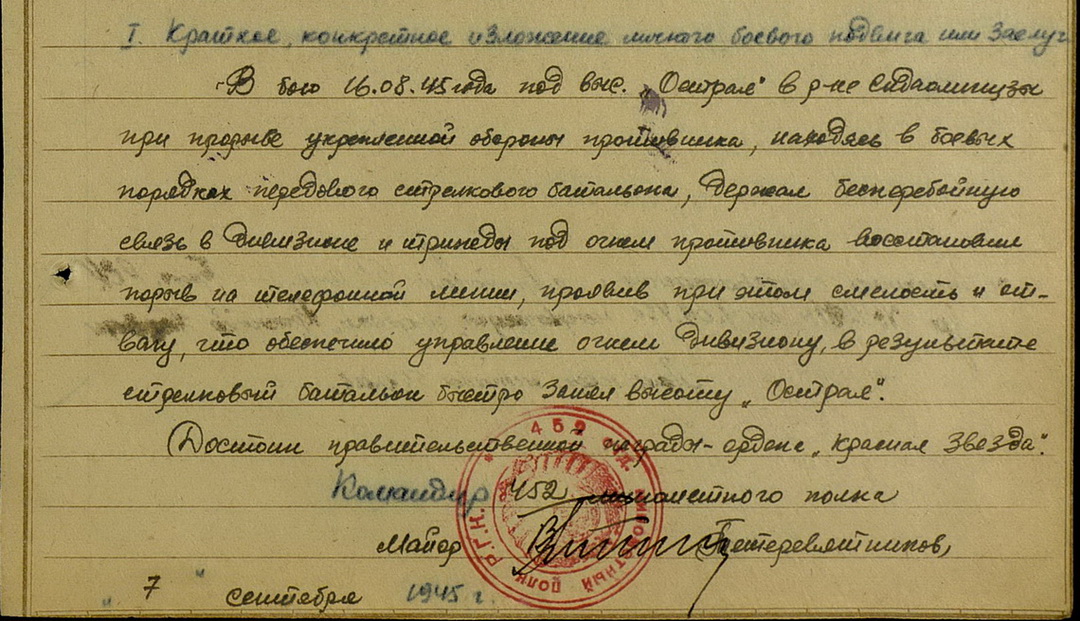 I. Краткое, конкретное изложение личного боевого подвига или заслуг
В бою 16.08.45 года под выс. „Острая" в р-не
при прорыве укрепленной обороны противника, находясь в боевых
порядках передового стрелкового батальона, держал бесперебойную
связь в дивизионе и трижды под огнем противника восстановил
порыв на телефонной линии, проявив при этом смелость и от-
вагу, что обеспечило управление огнем дивизиону, в результате
стрелковый батальон быстро занял высоту „Острая".
Достоин правительственной награды - ордена „Красная Звезда".
Командир 452 минометного полка
Майор Тетеревятников,
7 сентября 1945 г.
452 МИНОМЕТНЫЙ ПОЛК Р.Г.К.